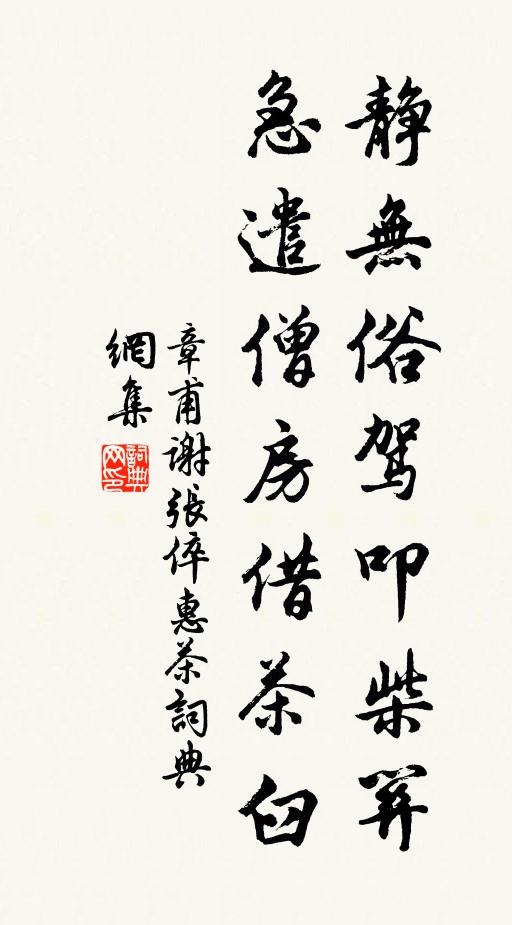 静無俗駕叩柴関
急遣僧房借茶臼
章甫謝張倅惠茶詞典
網集
詞典
网印